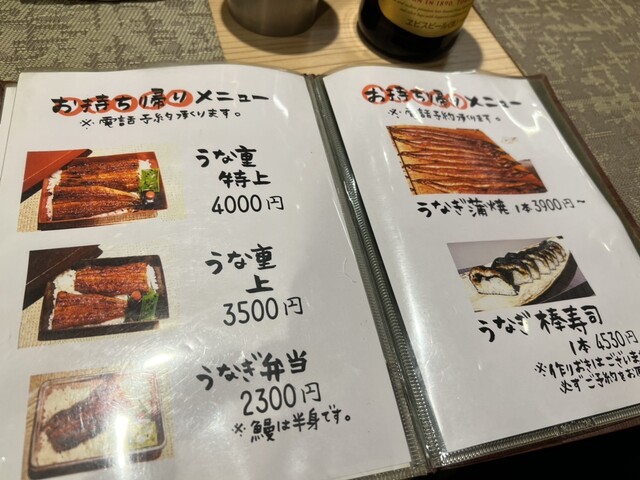 エビスビール
お持ち帰りメニュー
※電話予約承ります。
うな重
特上
4000円
うな重
上
3500円
うなぎ弁当
2300円
※鰻は半身です。
お持ち帰りメニュー
※電話予約承ります。
うなぎ蒲焼 1本3900円~
うなぎ棒寿司
1本 4530円
※作りおきはございま
必ずご予約をお